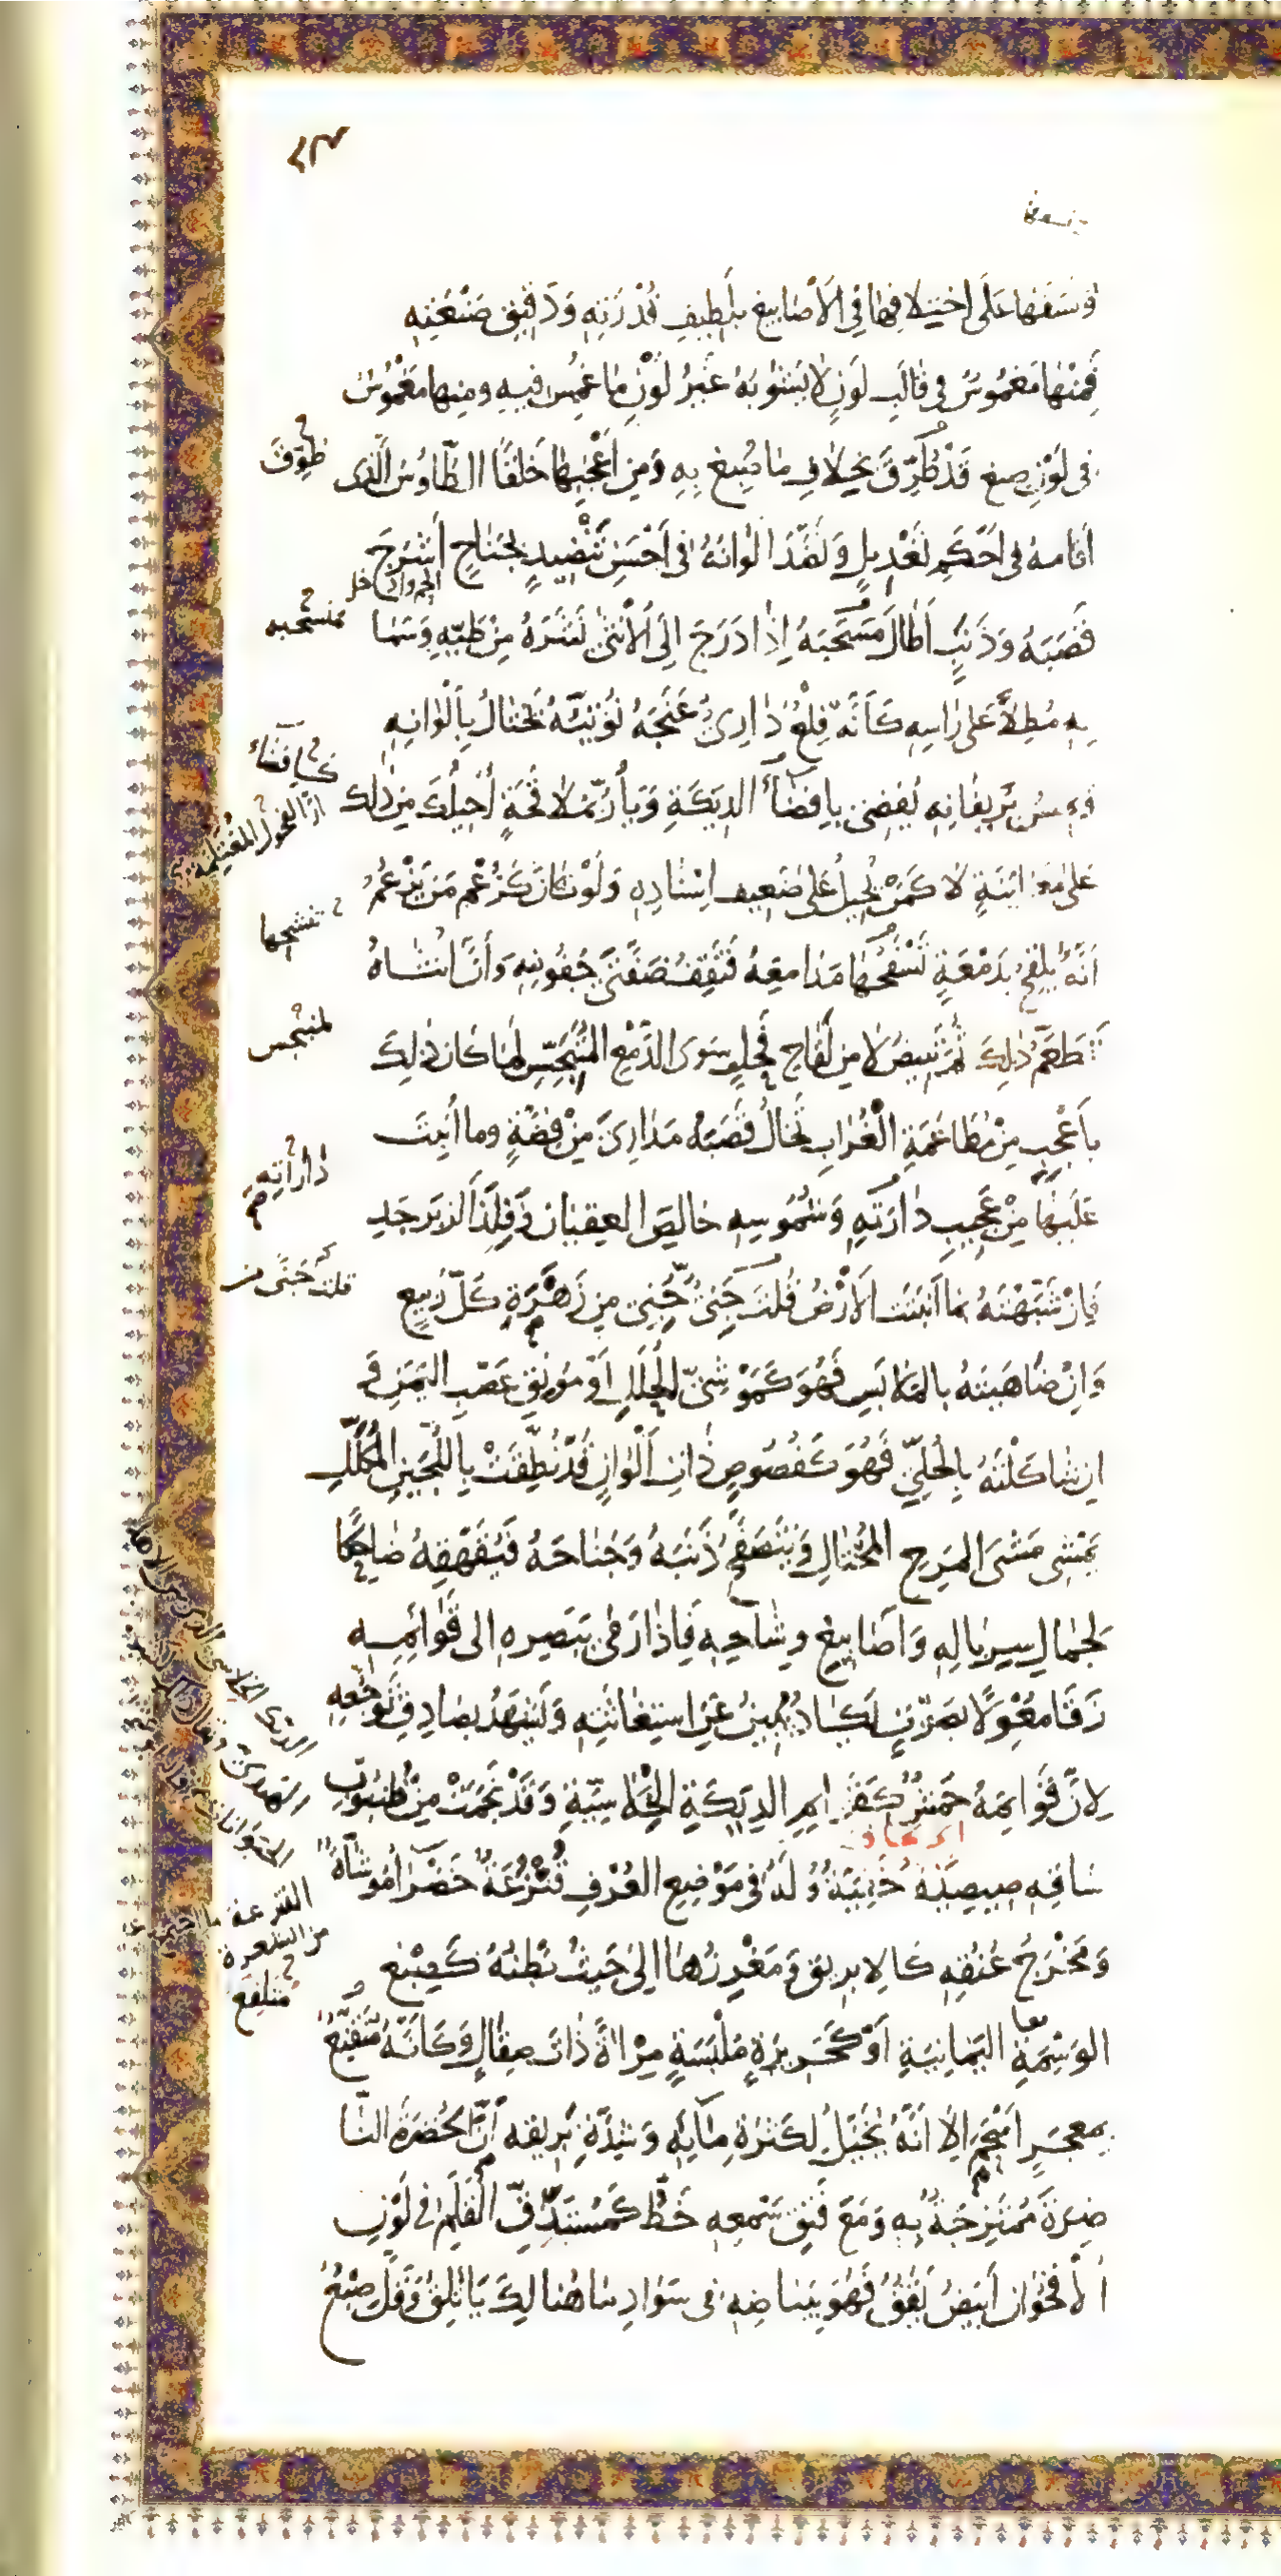 وَنَسَقَهَا عَلَى اخْتِلَافِهَا فِي الْأَصَابِيغِ بِلَطِيفِ قُدْرَتِهِ وَدَقِيقِ صَنْعَتِهِ
فَمِنْهَا مَغْمُوسٌ فِي قَالَبِ لَوْنٍ لَا يَشُوبُهُ غَيْرُ لَوْنِ مَا غُمِسَ فِيهِ وَمِنْهَا مَغْمُوسٌ
فِي لَوْنِ صِبْغٍ قَدْ طُرِّقَ بِخِلَافِ مَا صُبِغَ بِهِ وَمِنْ أَعْجَبِهَا خَلْقًا الطَّاوُسُ الَّذِي
طُوِّقَ
أَقَامَهُ فِي أَحْكَمِ تَعْدِيلٍ وَنَضَّدَ أَلْوَانَهُ فِي أَحْسَنِ تَنْضِيدٍ بِجَنَاحٍ أَشْرَجَ
قَصَبَهُ وَذَنَبٍ أَطَالَ مَسْحَبَهُ إِذَا دَرَجَ إِلَى الْأُنْثَى نَشَرَهُ مِنْ طَيِّهِ وَسَمَا
بِهِ مُطِلًّا عَلَى رَاسِهِ كَأَنَّهُ قِلْعُ دَارِيٍّ عَنَجَهُ نُوتِيُّهُ يَخْتَالُ بِأَلْوَانِهِ
وَيَمِيسُ بِزَيَفَانِهِ يُفْضِي بِإِفْضَاءِ الدِّيَكَةِ وَيَأُرُّ بِمُلَاقَحَةٍ أُحِيلُكَ مِنْ ذَلِكَ
كَإِفْضَاءِ
أَرَّ الْفُحُولِ الْمُغْتَلِمَةِ
عَلَى مُعَايَنَةٍ لَا كَمَنْ يُحِيلُ عَلَى ضَعِيفِ إِسْنَادِهِ وَلَوْ كَانَ كَزَعْمِ مَنْ يَزْعُمُ
أَنَّهُ يُلْقِحُ بِدَمْعَةٍ تَسْفَحُهَا مَدَامِعُهُ فَتَقِفُ فِي ضَفَّتَيْ جُفُونِهِ وَأَنَّ أُنْثَاهُ
تَطَعَّمُ ذَلِكَ ثُمَّ تَبِيضُ لَا مِنْ لِقَاحِ فَحْلٍ سِوَى الدَّمْعِ الْمُنْبَجِسِ لَمَا كَانَ ذَلِكَ
بِأَعْجَبَ مِنْ مُطَاعَمَةِ الْغُرَابِ تَخَالُ قَصَبَهُ مَدَارِيَ مِنْ فِضَّةٍ وَمَا أُنْبِتَ
دَارَاتِهِ
عَلَيْهَا مِنْ عَجِيبِ دَارَتِهِ وَشُمُوسِهِ خَالِصَ الْعِقْيَانِ وَفِلَذَ الزَّبَرْجَدِ
فَإِنْ شَبَّهْتَهُ بِمَا أَنْبَتَتِ الْأَرْضُ قُلْتَ جَنِيٌّ جُنِيَ مِنْ زَهْرَةِ كُلِّ رَبِيعٍ
وَإِنْ ضَاهَيْتَهُ بِالْمَلَابِسِ فَهُوَ كَمَوْشِيِّ الْحُلَلِ أَوْ مُونِقِ عَصْبِ الْيَمَنِ وَ
إِنْ شَاكَلْتَهُ بِالْحُلِيِّ فَهُوَ كَفُصُوصٍ ذَاتِ أَلْوَانٍ قَدْ نُطِّقَتْ بِاللُّجَيْنِ الْمُكَلَّلِ
يَمْشِي مَشْيَ الْمَرِحِ الْمُخْتَالِ وَيَتَصَفَّحُ ذَنَبَهُ وَجَنَاحَهُ فَيُقَهْقِهُ ضَاحِكًا
لِجَمَالِ سِرْبَالِهِ وَأَصَابِيغِ وِشَاحِهِ فَإِذَا رَمَى بِبَصَرِهِ إِلَى قَوَائِمِهِ
زَقَا مُعْوِلًا بِصَوْتٍ يَكَادُ يُبِينُ عَنِ اسْتِغَاثَتِهِ وَيَشْهَدُ بِصَادِقِ تَوَجُّعِهِ
لِأَنَّ قَوَائِمَهُ حُمْشٌ كَقَوَائِمِ الدِّيَكَةِ الْخِلَاسِيَّةِ وَقَدْ نَجَمَتْ مِنْ ظُنْبُوبِ
سَاقِهِ صِيصِيَةٌ خَفِيَّةٌ وَلَهُ فِي مَوْضِعِ الْعُرْفِ قُنْزُعَةٌ خَضْرَاءُ مُوَشَّاةٌ
وَمَخْرَجُ عُنُقِهِ كَالْإِبْرِيقِ وَمَغْرِزُهَا إِلَى حَيْثُ بَطْنُهُ كَصِبْغِ
مُتَلَفِّعٌ
الْوَسِمَةِ الْيَمَانِيَةِ أَوْ كَحَرِيرَةٍ مُلْبَسَةٍ مِرْآةً ذَاتَ صِقَالٍ وَكَأَنَّهُ مُتَقَنِّعٌ
بِمِعْجَرٍ أَسْحَمَ إِلَّا أَنَّهُ يُخَيَّلُ لِكَثْرَةِ مَائِهِ وَشِدَّةِ بَرِيقِهِ أَنَّ الْخُضْرَةَ النَّا
ضِرَةَ مُمْتَزِجَةٌ بِهِ وَمَعَ فَتْقِ سَمْعِهِ خَطٌّ كَمُسْتَدَقِّ الْقَلَمِ فِي لَوْنِ
الْأُقْحُوَانِ أَبْيَضُ يَقَقٌ فَهُوَ بِبَيَاضِهِ فِي سَوَادِ مَا هُنَالِكَ يَأْتَلِقُ وَقَلَّ صِبْغٌ